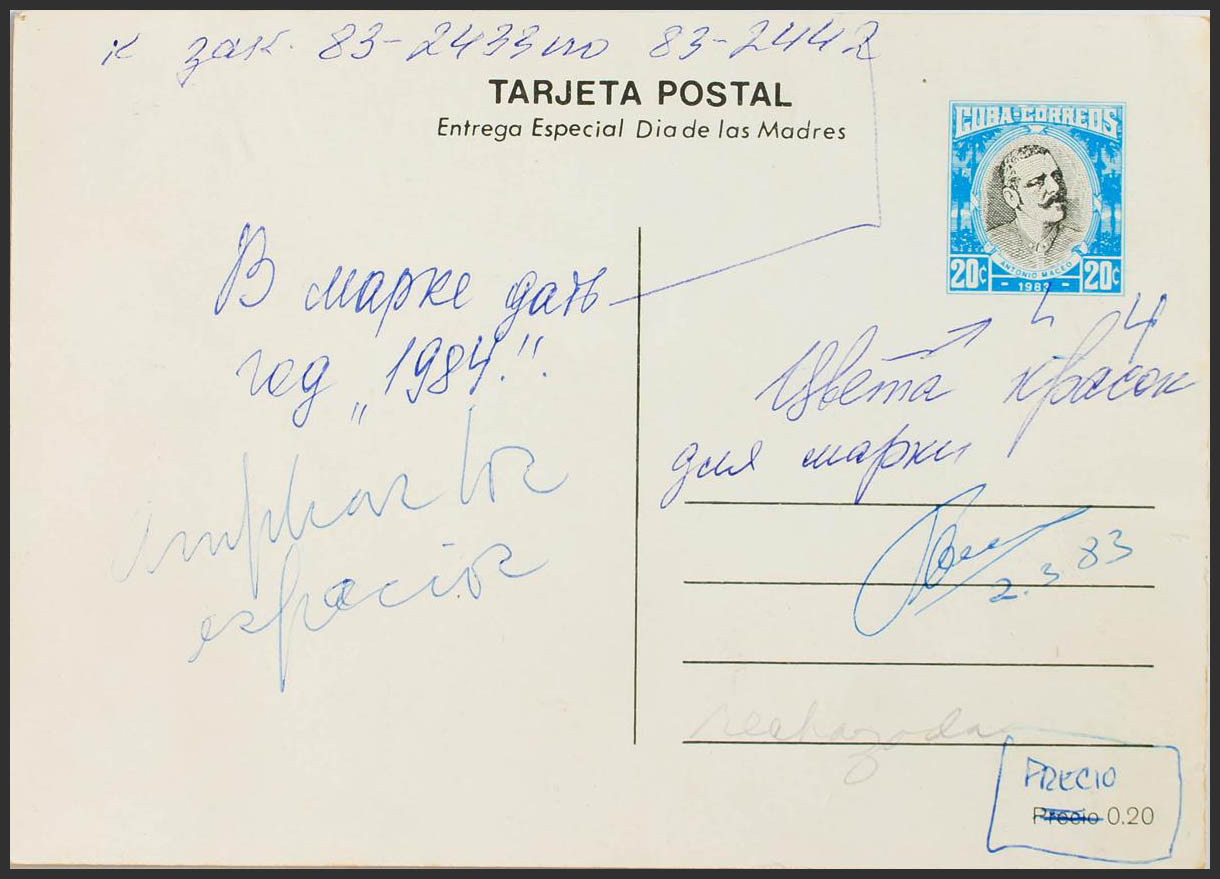 к зак. 83-2433 по 83-2442
TARJETA POSTAL
Entrega Especial Dia de las Madres
CUBA-CORREOS
ANTONIO MACEO
20¢ - 1983 - 20¢
В марке дать
год „1984"!
4
Цвета красок
для марки
ampliar los
espacios
2.3 83
rechazada
PRECIO
Precio 0.20